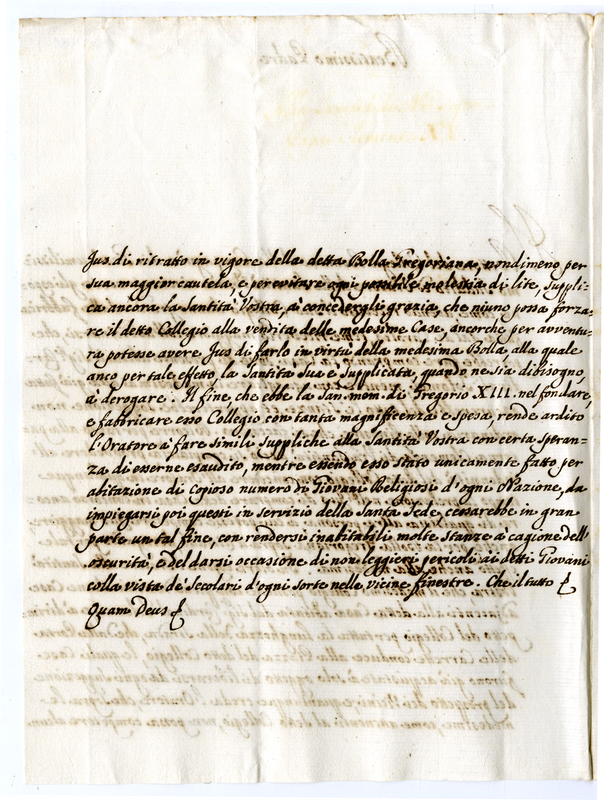 Jus di ritratto in vigore della detta Bolla Gregoriana, nondimeno per
sua maggior cautela, e per evitare ogni possibile molestia di lite, suppli-
ca ancora la Santità Vostra, à concedergli grazia, che niuno possa forza-
re il detto Collegio alla vendita delle medesime Case, ancorche per avventu-
ra potesse avere Jus di farlo in virtù della medesima Bolla, alla quale
anco per tale effetto, la Santità Sua è supplicata, quando ne sia di bisogno,
à derogare. Il fine, che ebbe la San: mem: di Gregorio XIII. nel fondare,
e fabbricare esso Collegio con tanta magnificenza e spesa, rende ardito
l'Oratore à fare simili suppliche alla Santità Vostra con certa speran-
za di esserne esaudito, mentre essendo esso stato unicamente fatto per
abitazione di copioso numero di Giovani Religiosi d'ogni Nazione, da
impiegarsi poi questi in servizio della Santa Sede, cessarebbe in gran
parte un tal fine, con rendersi inabitabili molte stanze à cagione dell'
oscurità, e del darsi occasione di non leggieri pericoli ai detti Giovani
colla vista de' Secolari d'ogni sorte nelle vicine finestre. Che il tutto
Quam Deus